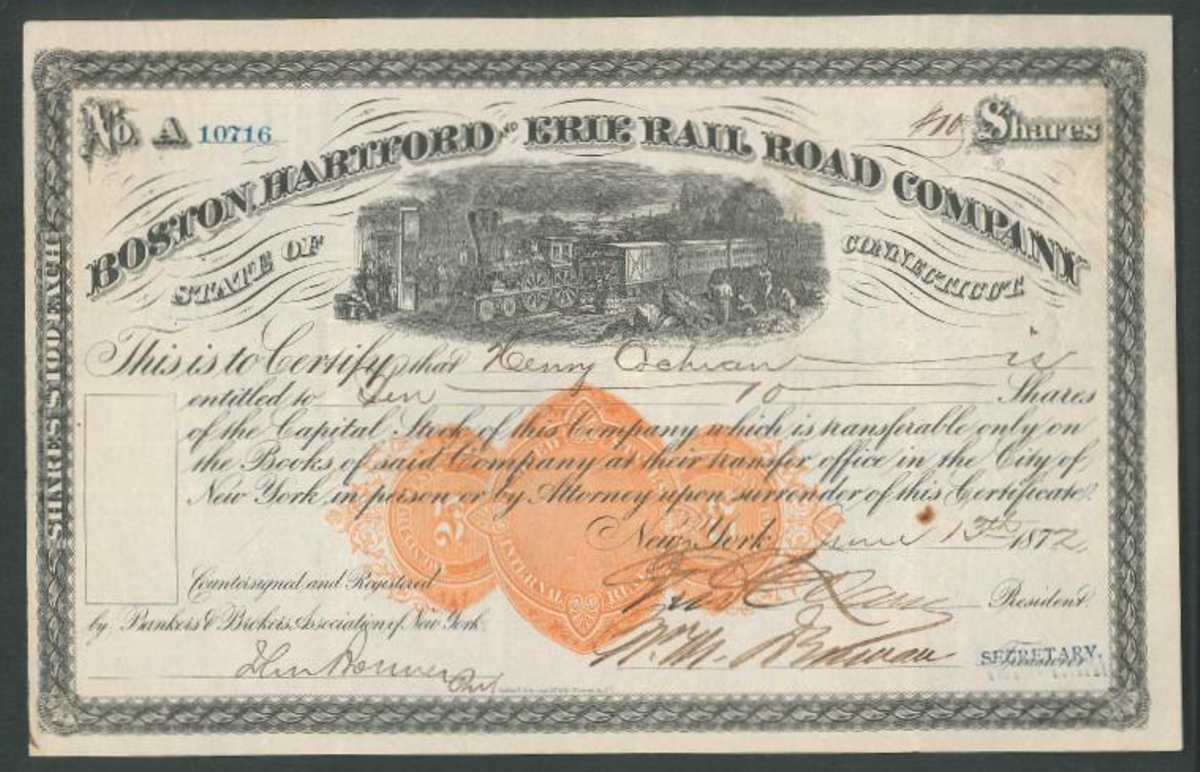 No. A 10716
10 Shares
BOSTON, HARTFORD AND ERIE RAIL ROAD COMPANY
STATE OF CONNECTICUT.
SHARES $100 EACH
This is to Certify, that Henry Cochran is
entitled to Ten 10 Shares
of the Capital Stock of this Company which is transferable only on
the Books of said Company at their transfer office in the City of
New York, in person or by Attorney upon surrender of this Certificate.
New York June 13th 1872
25 25
INTERNAL REVENUE
Countersigned and Registered
President.
by Bankers & Brokers Association of New York
SECRETARY.
Treasurer